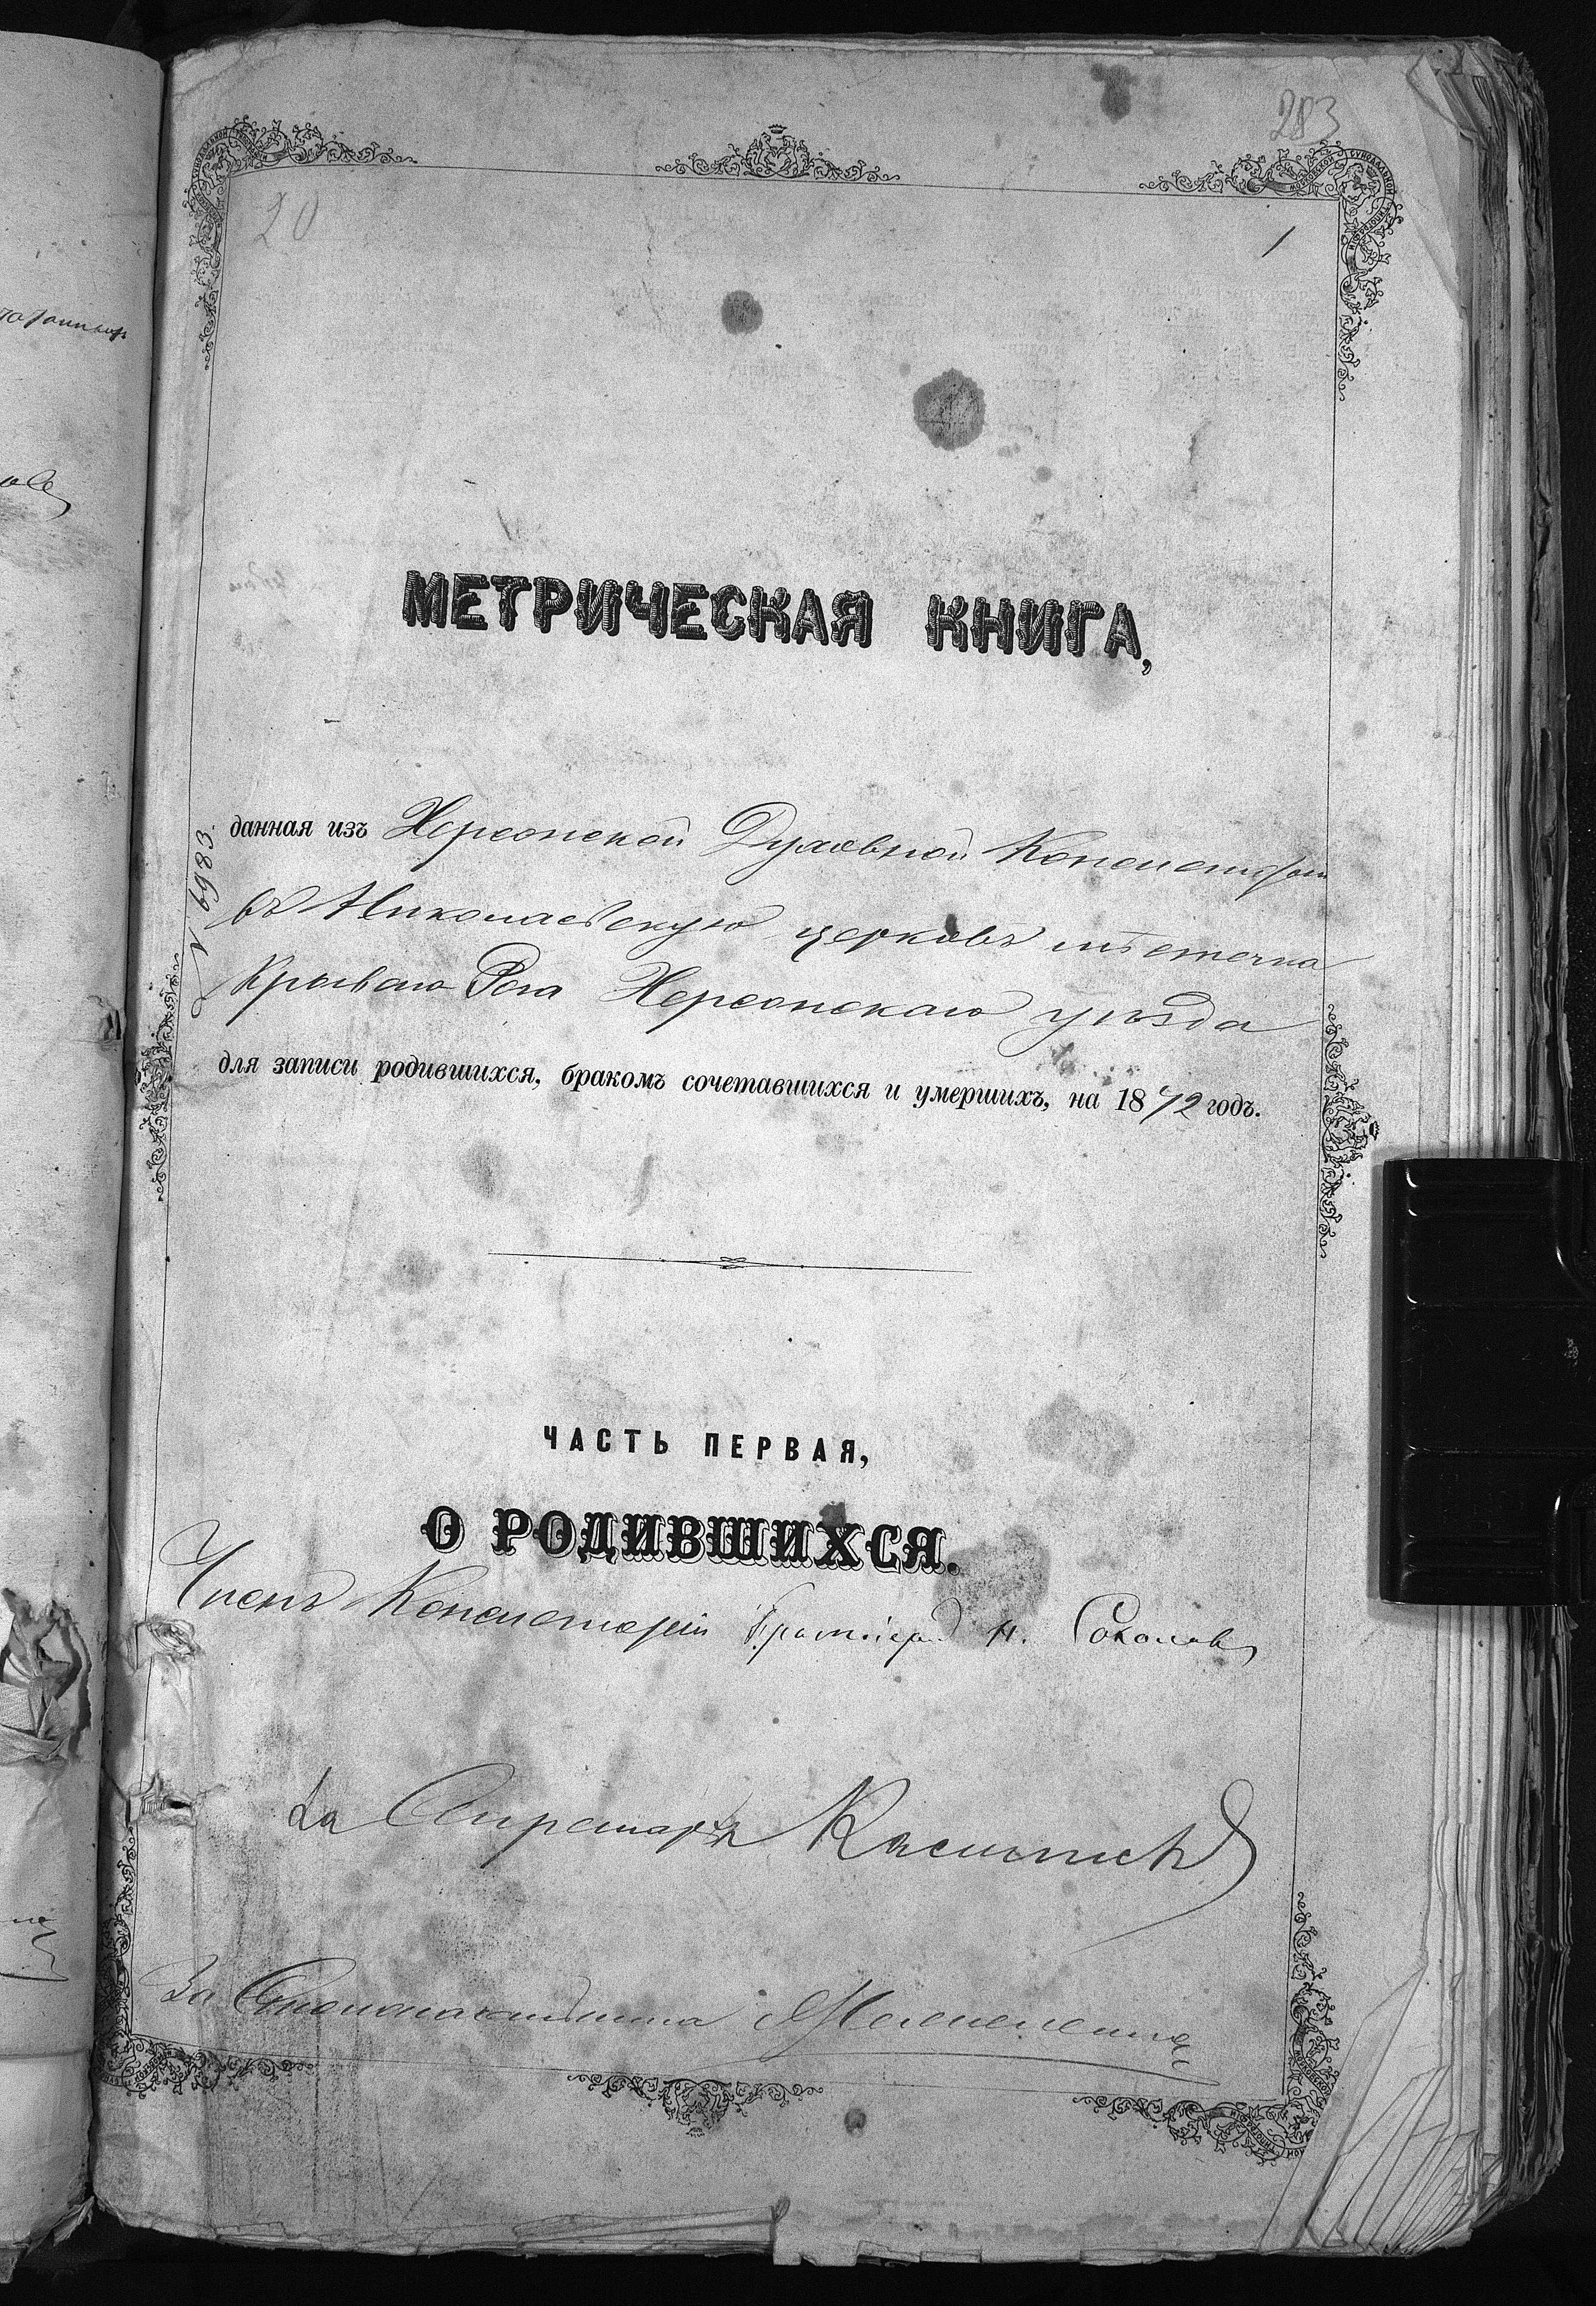 283
20
1
МЕТРИЧЕСКАЯ КНИГА,
данная изъ Херсонской Духовной Консисторіи
въ Николаевскую церковь мѣстечка
Криваго Рога Херсонскаго уѣзда
№ 6983.
для записи родившихся, бракомъ сочетавшихся и умершихъ, на 1872 годъ.
ЧАСТЬ ПЕРВАЯ,
О РОДИВШИХСЯ.
Членъ Консисторіи Протоіерей Н. Соколовъ
За Секретаря
За Столоначальника